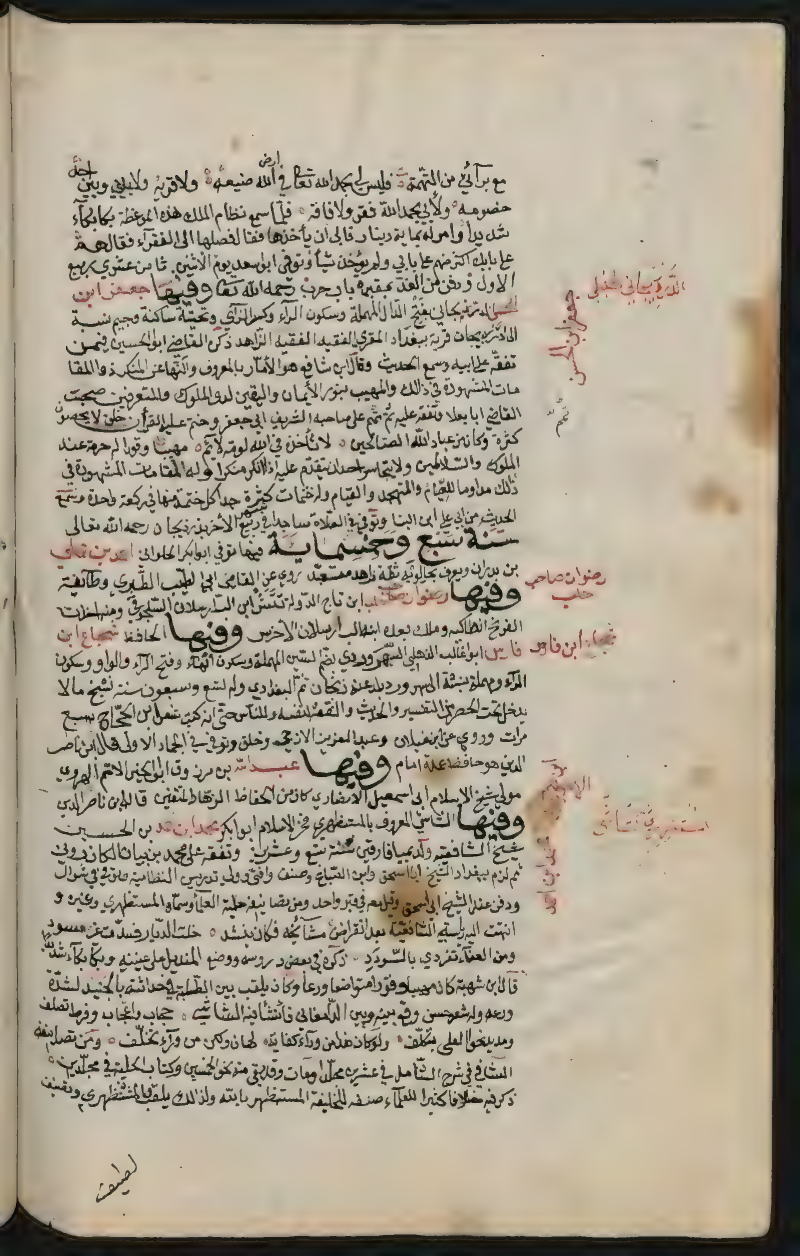 مع برآئي من التهمة فليس لي بحمد الله تعالى في أرض الله ضيعة ولا قرية ولا بيني وبين احد
خصومة ولا بي بحمد الله فقر ولا فاقة فلما سمع نظام الملك هذه الموعظة بكا بكآء
شديدا وامر له بماية دينار فابى ان يأخذها فقال فضلها الى الفقرآء فقال هم
على بابك اكثر منهم على بابي ولم يؤخذ شيأ وتوفى ابو سعد يوم الاثنين ثامن عشري ربيع
الاول ودفن من الغد بمقبرة باب حرب رحمه الله تعالى وفيها جعفر ابن
الحسن الدرزيجاني بفتح الدال المهملة وسكون الرآء وكسر الزاي وتحتية ساكنة وجيم نسبة
الى درزيجان قرية ببغداد المقري الفقيه الزاهد ذكره القاضي ابو الحسين فيمن
تفقه على ابيه وسمع الحديث وقال ابن شافع هو الأمار بالمعروف والنهآء عن المنكر ذو المقا
مات المشهودة في ذلك والمهيب بنور الأيمان واليقين لدى الملوك والمتصرفين صحب
القاضي ابا يعلا وتفقه عليه ثم تمم على صاحبه الشريف ابي جعفر وختم عليه القرآن خلق لا يحصون
كثرة وكان من عباد الله الصالحين لا تأخذه في الله لومة لآئم مهيبا وقورا له حرمة عند
الملوك والسلاطين ولا يتجاسر احد ان يقدم عليه اذا انكر منكرا وله المقامات المشهودة في
ذلك مداوما للصيام والتهجد والقيام وله ختمات كثيرة جدا كل ختمة منها في ركعة واحدة وسمع
الحديث من ابي علي ابن البنا وتوفي في الصلاة ساجدا في ربيع الآخر بدرزيجان رحمه الله تعالى
سنة سبع وخمسماية فيها توفي ابو بكر الحلواني احمد بن علي
بن بدران ويعرف بخالويه ثقة زاهد متعبد روي عن القاضي ابي الطيب الطبري وطائفة
وفيها رضوان صاحب حلب ابن تاج الدولة تتش ابن السلارسلان السلجوقي ومنه اخذت
الفرنج انطاكية وملك بعده ابنه الب ارسلان الاخرس وفيها الحافظ شجاع ابن
فارس ابو غالب الذهلي السهروردي بضم السين المهملة وسكون الهاء وفتح الرآء والواو وسكون
الرآء ومهملة نسبة الى سهرورد بلد عند زنجان ثم البغدادي وله سبع وسبعون سنة نسخ ما لا
يدخل تحت الحصر من التفسير والحديث والفقه لنفسه وللناس حتى انه كتب شعر ابن الحجاج سبع
مرات وروي عن ابن غيلان وعبد العزيز الازجي وخلق وتوفي في الجماد الاولى قال ابن ناصر
الدين هو حافظ عمدة امام وفيها عبد الله بن مرزوق ابو الخير الاصم الهروي
مولى شيخ الاسلام ابي اسمعيل الانصاري كان من الحفاظ الزهاد المتقنين قاله ابن ناصر الدين
وفيها الشاشي المعروف بالمستظهري فخر الاسلام ابو بكر محمد ابن احمد بن الحسين
شيخ الشافعية ولد بميافارقين سنة تسع وعشرين وتفقه على محمد بن بيان الكازروني
ثم لزم ببغداد الشيخ ابا اسحق وابن الصباغ وصنف وافتى وولي تدريس النظامية وتوفي في شوال
ودفن عند الشيخ ابي اسحق وقيل معه في قبر واحد ومن تصانيفه حلية العلماء وسماه المستظهري وغيره و
انتهت اليه رياسة الشافعية بعد انقراض مشآئخه فكان ينشد خلت الديار فسدت غير مسود
ومن العنآء تفردي بالسودد ذكره في بعض دروسه ووضع المنديل على عينيه وبكا بكآء شديدا
قال ابن شهبة كان مهيبا وقورا متواضعا ورعا وكان يلقب بين الطلبة في حداثته بالجنيد لشدة
ورعه وله شعر حسن وقع بينه وبين الدامغاني فانشد فيه الشاشي حجاب واعجاب وفرط تصلف
ومد يد نحو العلى بتكلف ولو كان هذا من ورآء كفاية لهان ولكن من ورآء تخلف ومن تصانيفه
الشافي في شرح الشامل في عشرين مجلدا ومات وقد بقي منه نحو الخمسين وكتاب الحلية في مجلدين
ذكر فيه خلافا كثيرا للعلمآء صنفه للخليفة المستظهر بالله ولذلك يلقب بالمستظهري وتصنيف
لطيف
الدرزيجاني الحنبلي
جعفر ابن الحسن
رضوان صاحب
حلب
شجاع ابن فارس
المستظهري الشاشي
محمد ابن احمد